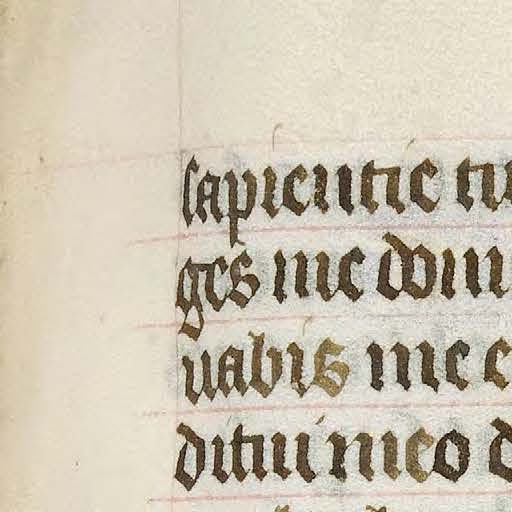 sapiencie tu
ges me dom
uabis me e
ditui meo d